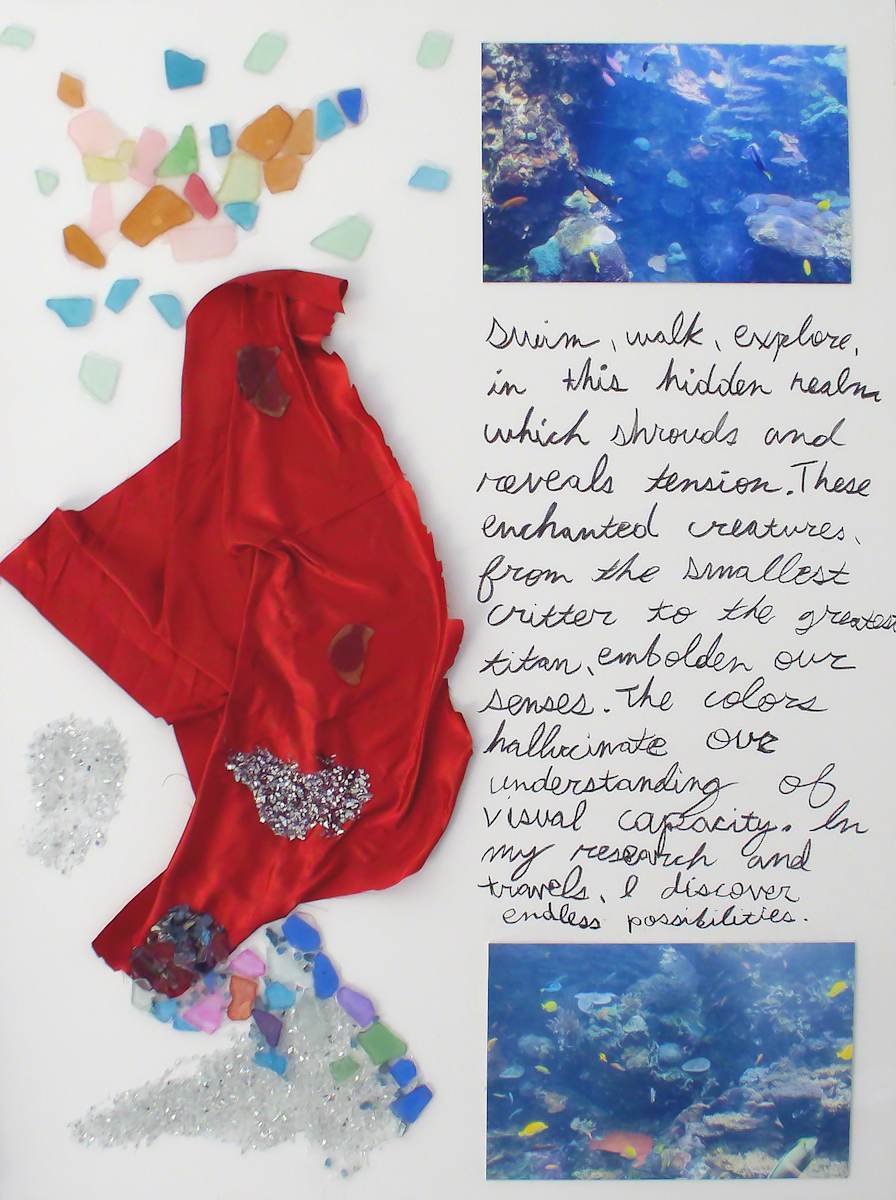 Swim, walk, explore,
in this hidden realm
which shrouds and
reveals tension. These
enchanted creatures,
from the smallest
critter to the greatest
titan, embolden our
senses. The colors
hallucinate our
understanding of
visual capacity. In
my research and
travels, I discover
endless possibilities.